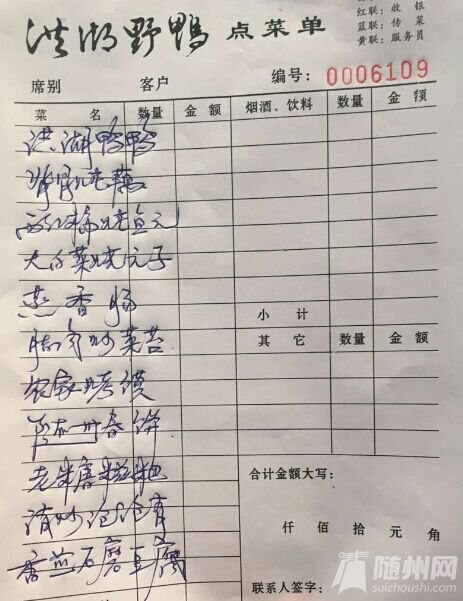 红联：收 银
蓝联：传 菜
黄联：服务员
洪湖野鸭 点菜单
席别 客户 编号：0006109
菜 名 数量 金 额 烟酒、饮料 数量 金 额
洪湖野鸭
大白菜烧丸子
蒸香肠
小 计
腊肉炒菜苔
其 它 数量 金 额
农家烤馍
春饼
老米磨糍粑
合计金额大写：
清炒泡泡青
仟 佰 拾 元 角
香煎石磨豆腐
联系人签字：
随州网
suizhoushi.com